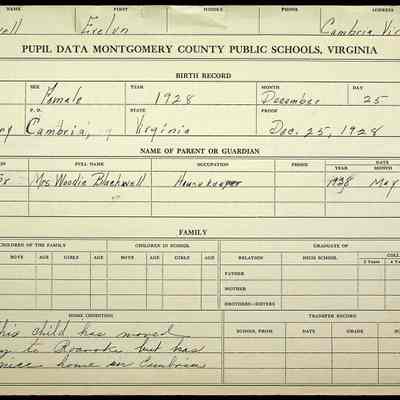 NAME FIRST MIDDLE PHONE ADDRESS
ell Evelyn Cambria, Vir
PUPIL DATA MONTGOMERY COUNTY PUBLIC SCHOOLS, VIRGINIA
BIRTH RECORD
SEX YEAR MONTH DAY
Female 1928 December 25
P. O. STATE PROOF
Cambria, Virginia Dec. 25, 1928
NAME OF PARENT OR GUARDIAN
FULL NAME OCCUPATION PHONE DATE
YEAR MONTH
Mrs Woodie Blackwell Housekeeper 1938 May
FAMILY
CHILDREN OF THE FAMILY CHILDREN IN SCHOOL GRADUATE OF
BOYS AGE GIRLS AGE BOYS AGE GIRLS AGE RELATION HIGH SCHOOL COLL
2 Years 4 Y
FATHER
MOTHER
BROTHERS—SISTERS
HOME CONDITION TRANSFER RECORD
his child has moved SCHOOL FROM DATE GRADE
to Roanoke but has
nice home in Cambria